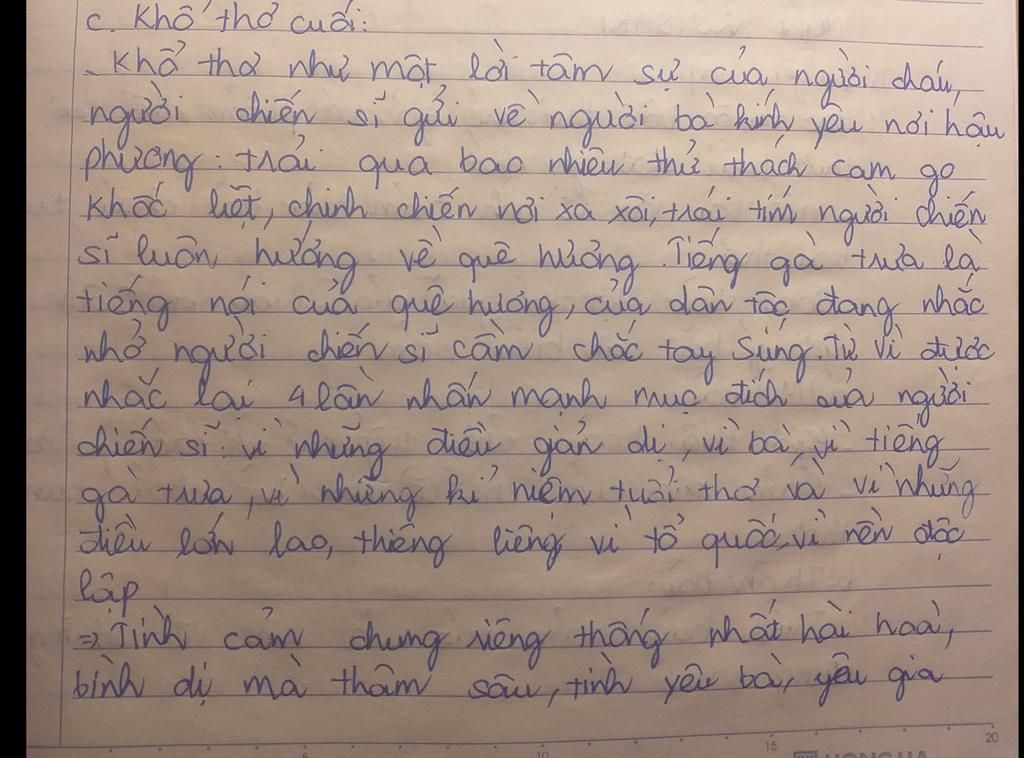 c. Khổ thơ cuối:
- Khổ thơ như một lời tâm sự của người cháu,
người chiến sĩ gửi về người bà kính yêu nơi hậu
phương: trải qua bao nhiêu thử thách cam go
khốc liệt, chinh chiến nơi xa xôi, trái tim người chiến
sĩ luôn hướng về quê hương. Tiếng gà trưa là
tiếng nói của quê hương, của dân tộc đang nhắc
nhở người chiến sĩ cầm chắc tay súng. Từ vì được
nhắc lại 4 lần nhấn mạnh mục đích của người
chiến sĩ: vì những điều giản dị, vì bà, vì tiếng
gà trưa, vì những kỉ niệm tuổi thơ và vì những
điều lớn lao, thiêng liêng, vì tổ quốc, vì nền độc
lập
=> Tình cảm chung riêng thống nhất hài hoà,
bình dị mà thâm sâu, tình yêu bà, yêu gia
5 10 15 20
HONG HA